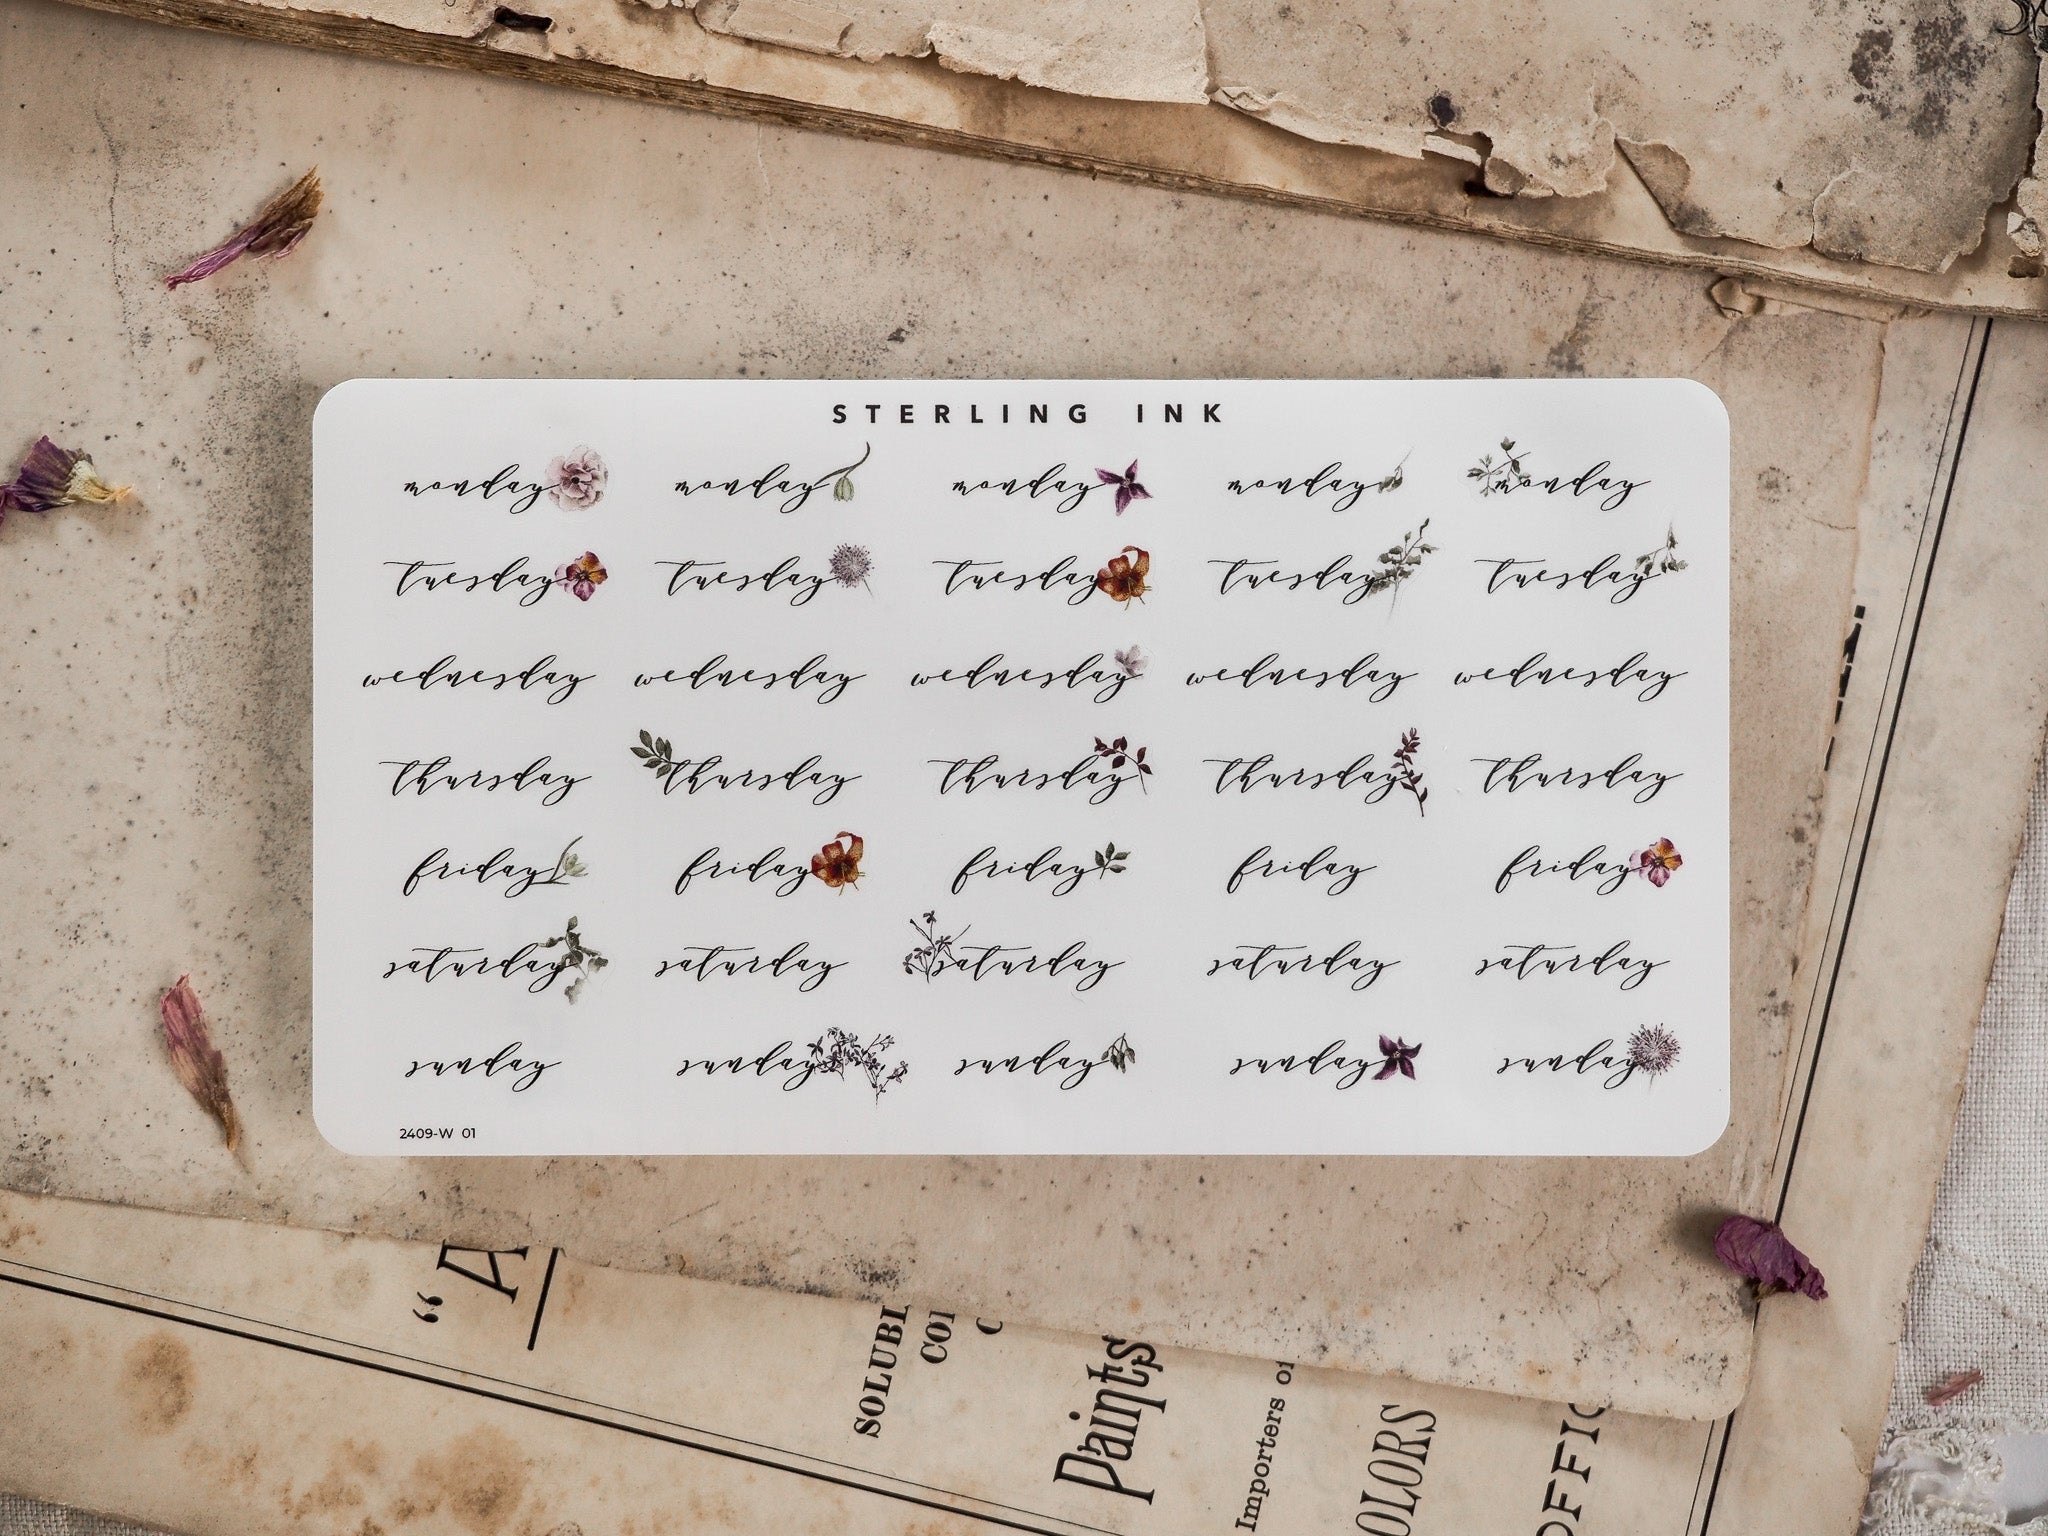 STERLING INK
monday monday monday monday monday
tuesday tuesday tuesday tuesday tuesday
wednesday wednesday wednesday wednesday wednesday
thursday thursday thursday thursday thursday
friday friday friday friday friday
saturday saturday saturday saturday saturday
sunday sunday sunday sunday sunday
2409-W 01
“A
SOLUBL
COL
Paints
Importers of
OLORS
OFFIC